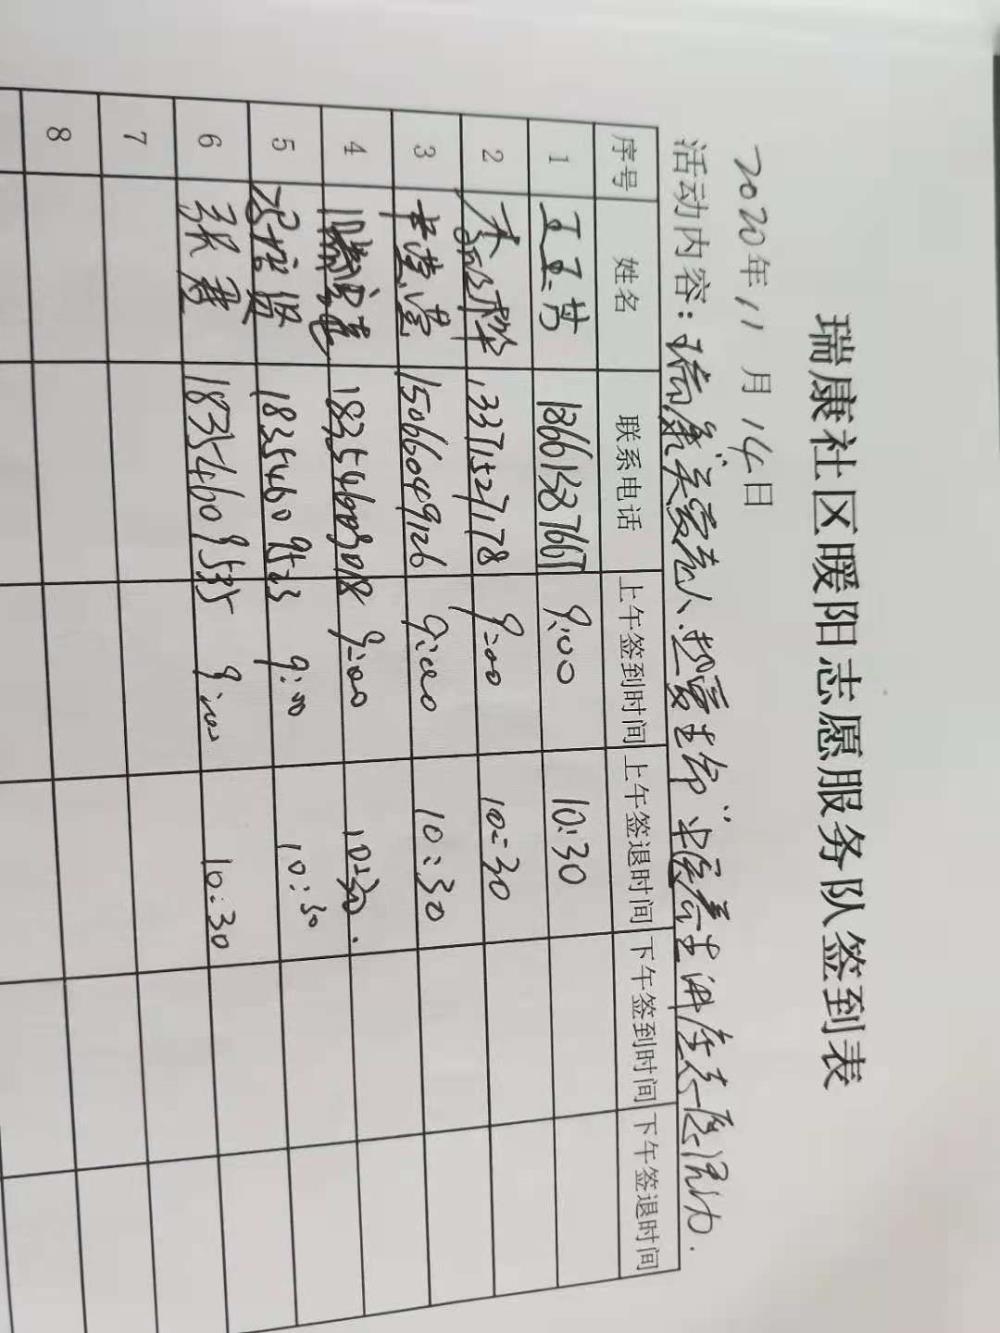 瑞康社区暖阳志愿服务队签到表
2020年11月14日
活动内容：瑞康"关爱老人.热爱生命"中医养生讲座志愿活动.
序号 姓名 联系电话 上午签到时间 上午签退时间 下午签到时间 下午签退时间
1 王玉芳 9:00 10:30
2 13371527178 9:00 10:30
3 15066049126 9:00 10:30
4 9:00 10:30.
5 18354609523 9:00 10:30
6 张 18354609535 9:00 10:30
7
8